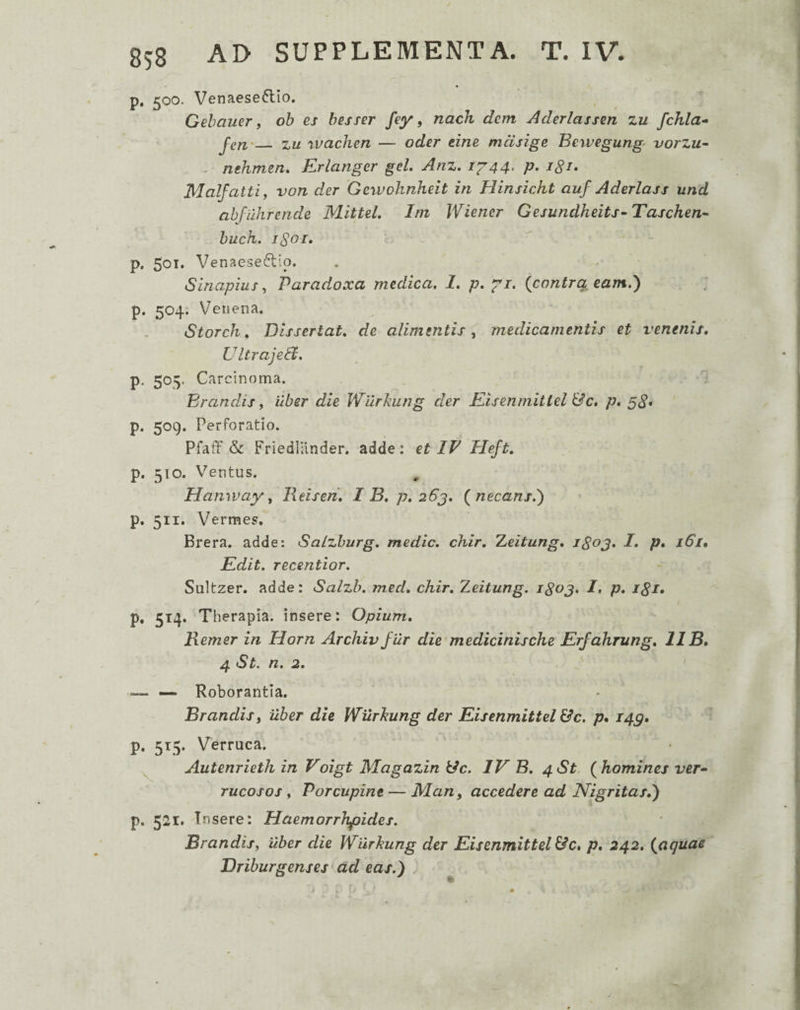 858 AD SUPPLEMENTA. T. IV.
p. 500. Venaesectio.
Gebauer, ob es besser sey, nach dem Aderlassen zu schla-
fen — zu wachen — oder eine mäsige Bewegung vorzu-
nehmen. Erlanger gel. Anz. 1744. p. 181.
Malfatti, von der Gewohnheit in Hinsicht auf Aderlass und
abführende Mittel. Im Wiener Gesundheits-Taschen-
buch. 1801.
p. 501. Venaesectio.
Sinapius, Paradoxa medica. I. p. 71. (contra eam.)
p. 504. Venena.
Storch. Dissertat. de alimentis, medicamentis et venenis.
Ultraject.
p. 505. Carcinoma.
Brandis, über die Würkung der Eisenmittel &c. p. 58.
p. 509. Perforatio.
Pfaff & Friedländer. adde: et IV Heft.
p. 510. Ventus.
Hanway, Reisen. I B. p. 263. (necans.)
p. 511. Vermes.
Brera. adde: Salzburg. medic. chir. Zeitung. 1803. I. p. 161.
Edit. recentior.
Sultzer. adde: Salzb. med. chir. Zeitung. 1803. I. p. 181.
p. 514. Therapia. insere: Opium.
Remer in Horn Archiv für die medicinische Erfahrung. II B.
4 St. n. 2.
— — Roborantia.
Brandis, über die Würkung der Eisenmittel &c. p. 149.
p. 515. Verruca.
Autenrieth in Voigt Magazin &c. IV B. 4 St (homines ver-
rucosos, Porcupine — Man, accedere ad Nigritas.)
p. 521. Insere: Haemorrhoides.
Brandis, über die Würkung der Eisenmittel &c. p. 242. (aquae
Driburgenses ad eas.)